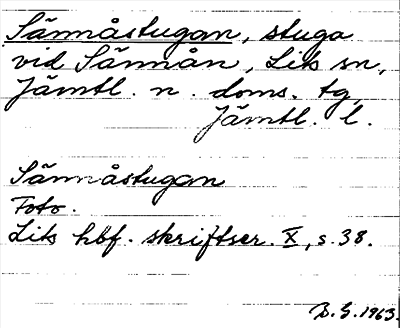 Sännåstugan, stuga
vid Sännån, Lits sn,
Jämtl. n. doms. tg,
Jämtl. l.
Sännåstugan
Foto.
Lits hbf. skriftser. X, s. 38.
B. G. 1963.